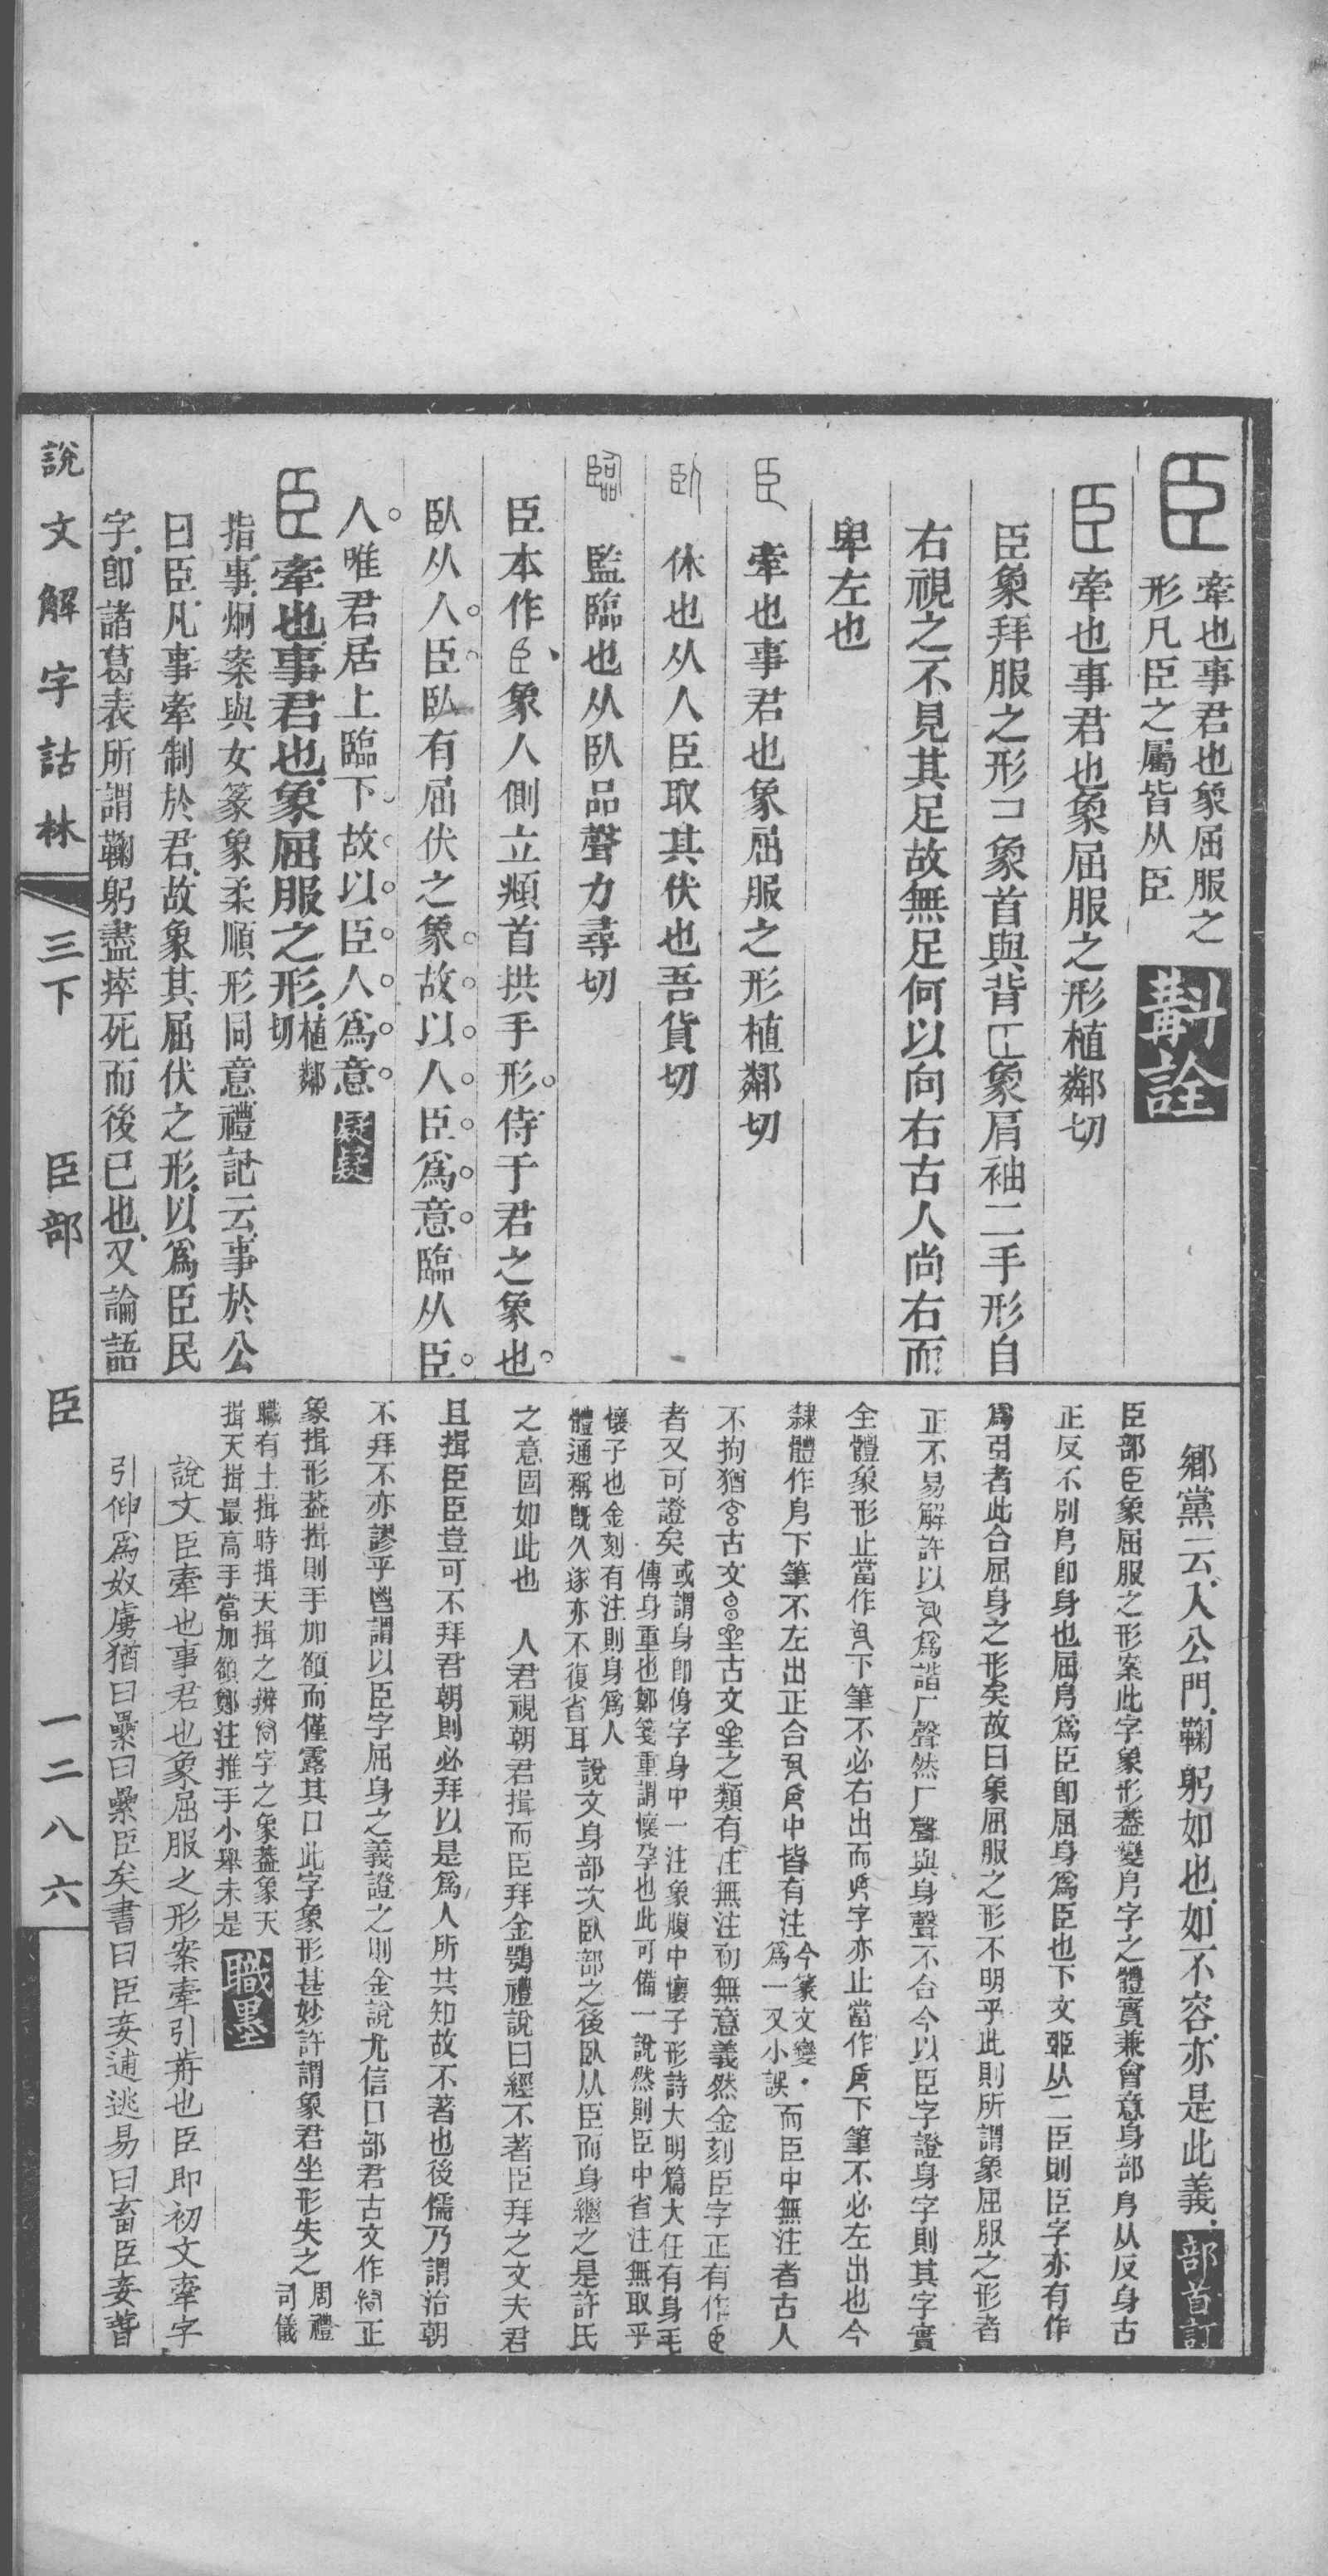 臣
牽也事君也象屈服之
形凡臣之屬皆从臣
斠詮
臣 牽也事君也象屈服之形植鄰切
臣象拜服之形コ象首與背象肩袖二手形自
右視之不見其足故無足何以向右古人尚右而
卑左也
臣 牽也事君也象屈服之形植鄰切
臥 休也从人臣取其伏也吾貨切
臨 監臨也从臥品聲力尋切
臣本作象人側立頫首拱手形侍于君之象也
臥从人臣臥有屈伏之象故以人臣爲意臨从臣
人唯君居上臨下故以臣人爲意
臣 牽也事君也象屈服之形植鄰切
指事烱案與女篆象柔順形同意禮記云事於公
曰臣凡事牽制於君故象其屈伏之形以爲臣民
字卽諸葛表所謂鞠躬盡瘁死而後已也又論語
鄉黨云入公門鞠躬如也如不容亦是此義 部首訂
臣部臣象屈服之形案此字象形葢變身字之體實兼會意身部㐆从反身古
正反不別㐆卽身也屈㐆爲臣卽屈身爲臣也下文𦣩从二臣則臣字亦有作
爲引者此合屈身之形矣故曰象屈服之形不明乎此則所謂象屈服之形者
正不易解許以爲諧厂聲然厂聲與身聲不合今以臣字證身字則其字實
全體象形止當作下筆不必右出而㐆字亦止當作下筆不必左出也今
隸體作身下筆不左出正合中皆有注今篆文變爲一又小誤而臣中無注者古人
不拘猶古文古文之類有注無注初無意義然金刻臣字正有作
者又可證矣或謂身卽㑗字身中一注象腹中懷子形詩大明篇大任有身毛
傳身重也鄭箋重謂懷孕也此可備一說然則臣中省注無取乎
懷子也金刻有注則身爲人
體通稱旣久遂亦不復省耳
說文身部次臥部之後臥从臣而身繼之是許氏
之意固如此也 人君視朝君揖而臣拜金鶚禮說曰經不著臣拜之文夫君
且揖臣臣豈可不拜君朝則必拜以是爲人所共知故不著也後儒乃謂治朝
不拜不亦謬乎鬯謂以臣字屈身之義證之則金說尤信口部君古文作正
象揖形葢揖則手加額而僅露其口此字象形甚妙許謂象君坐形失之周禮司儀
職有土揖時揖天揖之辨字之象葢象天
揖天揖最高手當加額鄭注推手小舉未是
職墨
說文臣牽也事君也象屈服之形案牽引歬也臣卽初文牽字
引伸爲奴虜猶曰纍曰纍臣矣書曰臣妾逋逃易曰畜臣妾
說文解字詁林 三下 臣部 臣 一二八六